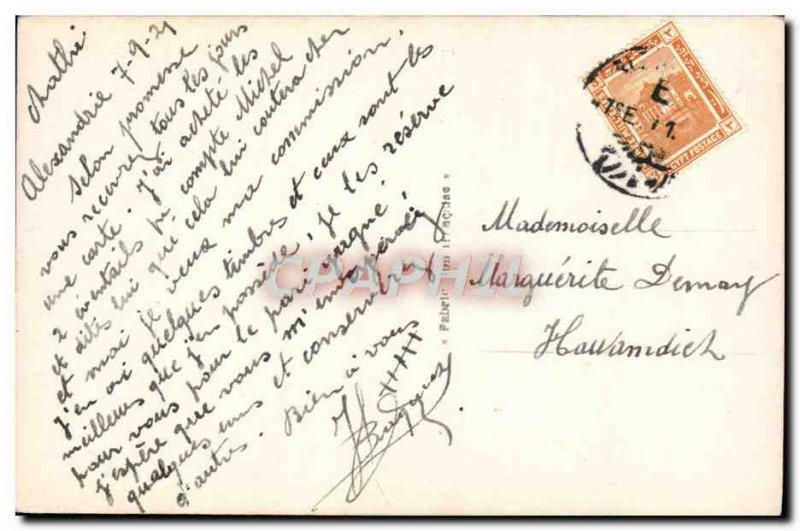 Chatbi
Alexandrie 7-9-21
Selon promesse
vous recevrez tous les jours
une carte. J'ai acheté les
2 éventails pr compte Michel
et dites lui que cela lui coutera cher
et moi je veux ma commission.
J'en ai quelques timbres et ceux sont les
meilleurs que j'en possède, je les réserve
pour vous pour le pari gagné.
J'espère que vous m'en
quelques uns et conserverez
d'autres. Bien à vous
Mademoiselle
Marguérite Demay
Hawamdieh
« Fabrication Française »
CPAPHIL
E
EGYPT POSTAGE